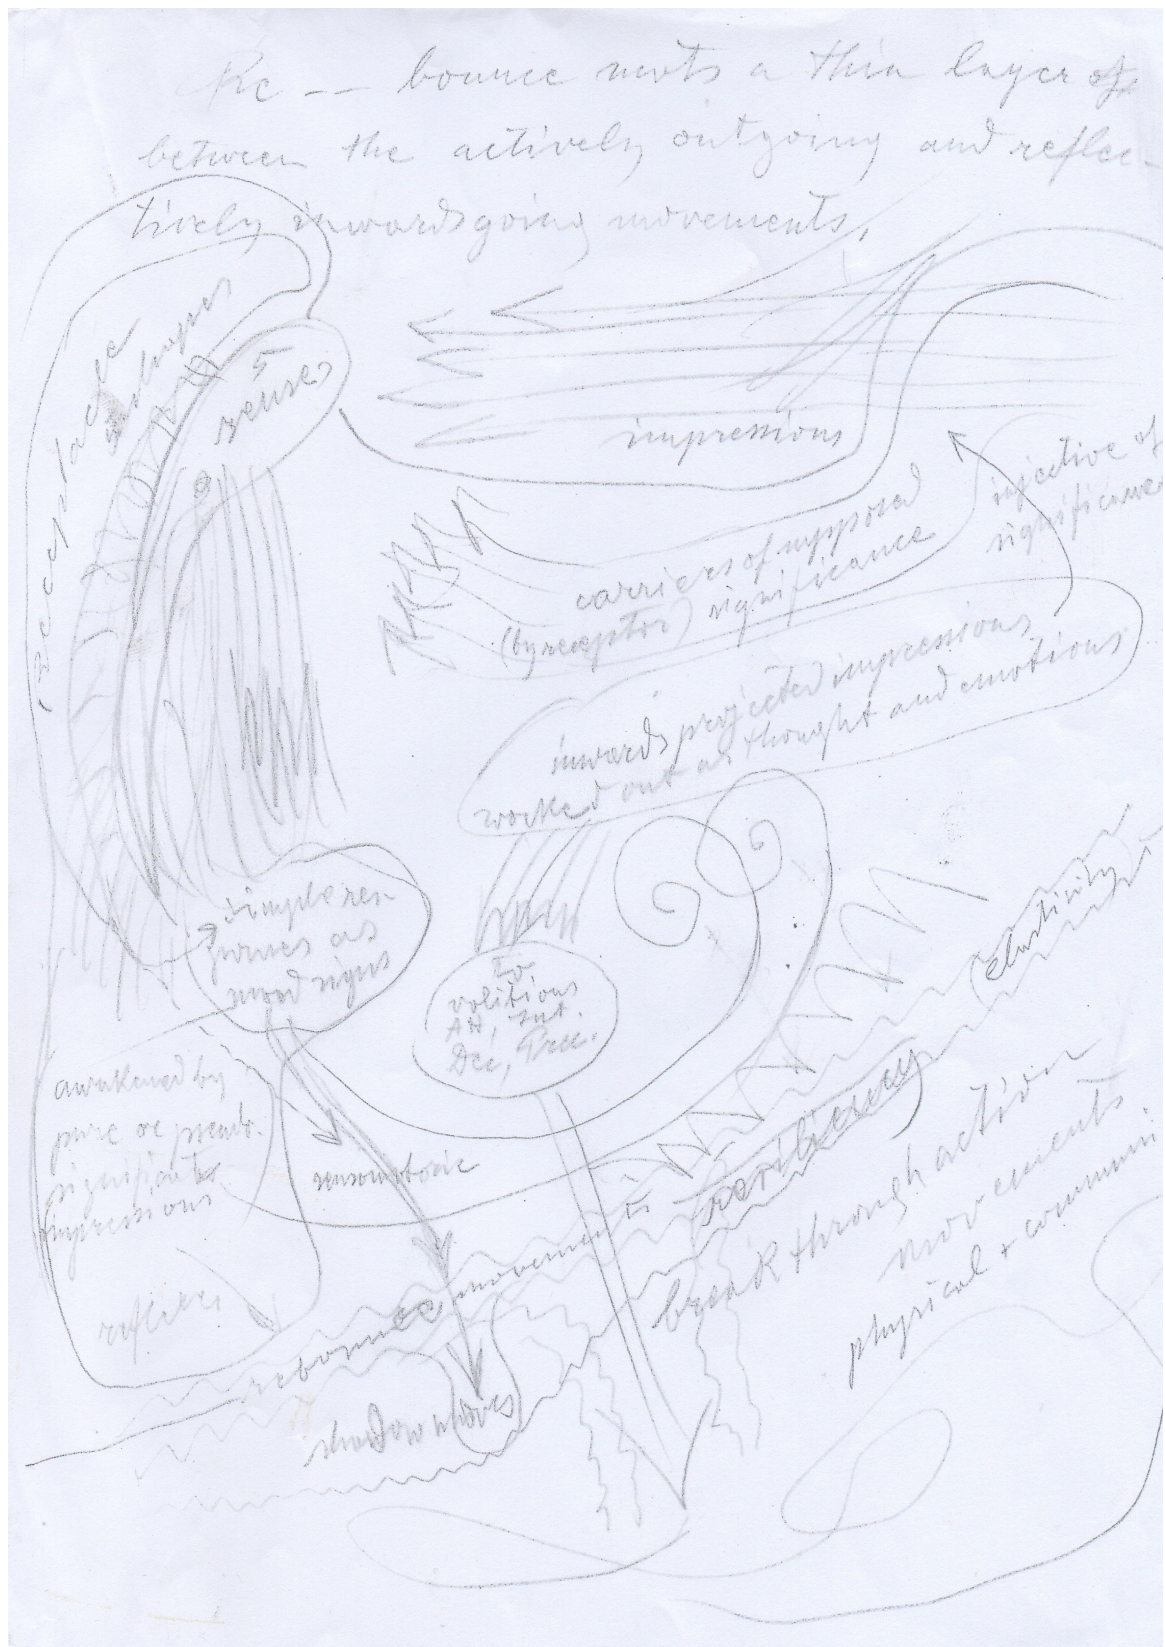 Re -- bounce meets a thin layer of
between the actively outgoing and reflec-
tively inwardsgoing movements,
receptacle
5
senses
impressions
injective of
significance
carriers of supposed
(by receptor) significance
inwards projected impressions
worked out as thought and emotions
simple res-
ponses as
mood signs
To
volitions
Att, Int.
Dec, Prec.
elasticity
resiliency
awakened by
pure or pseudo.
significants
impressions
sensomotoric
reflexes
rebounce movements
break through action
movements
physical + communi
shadow moves